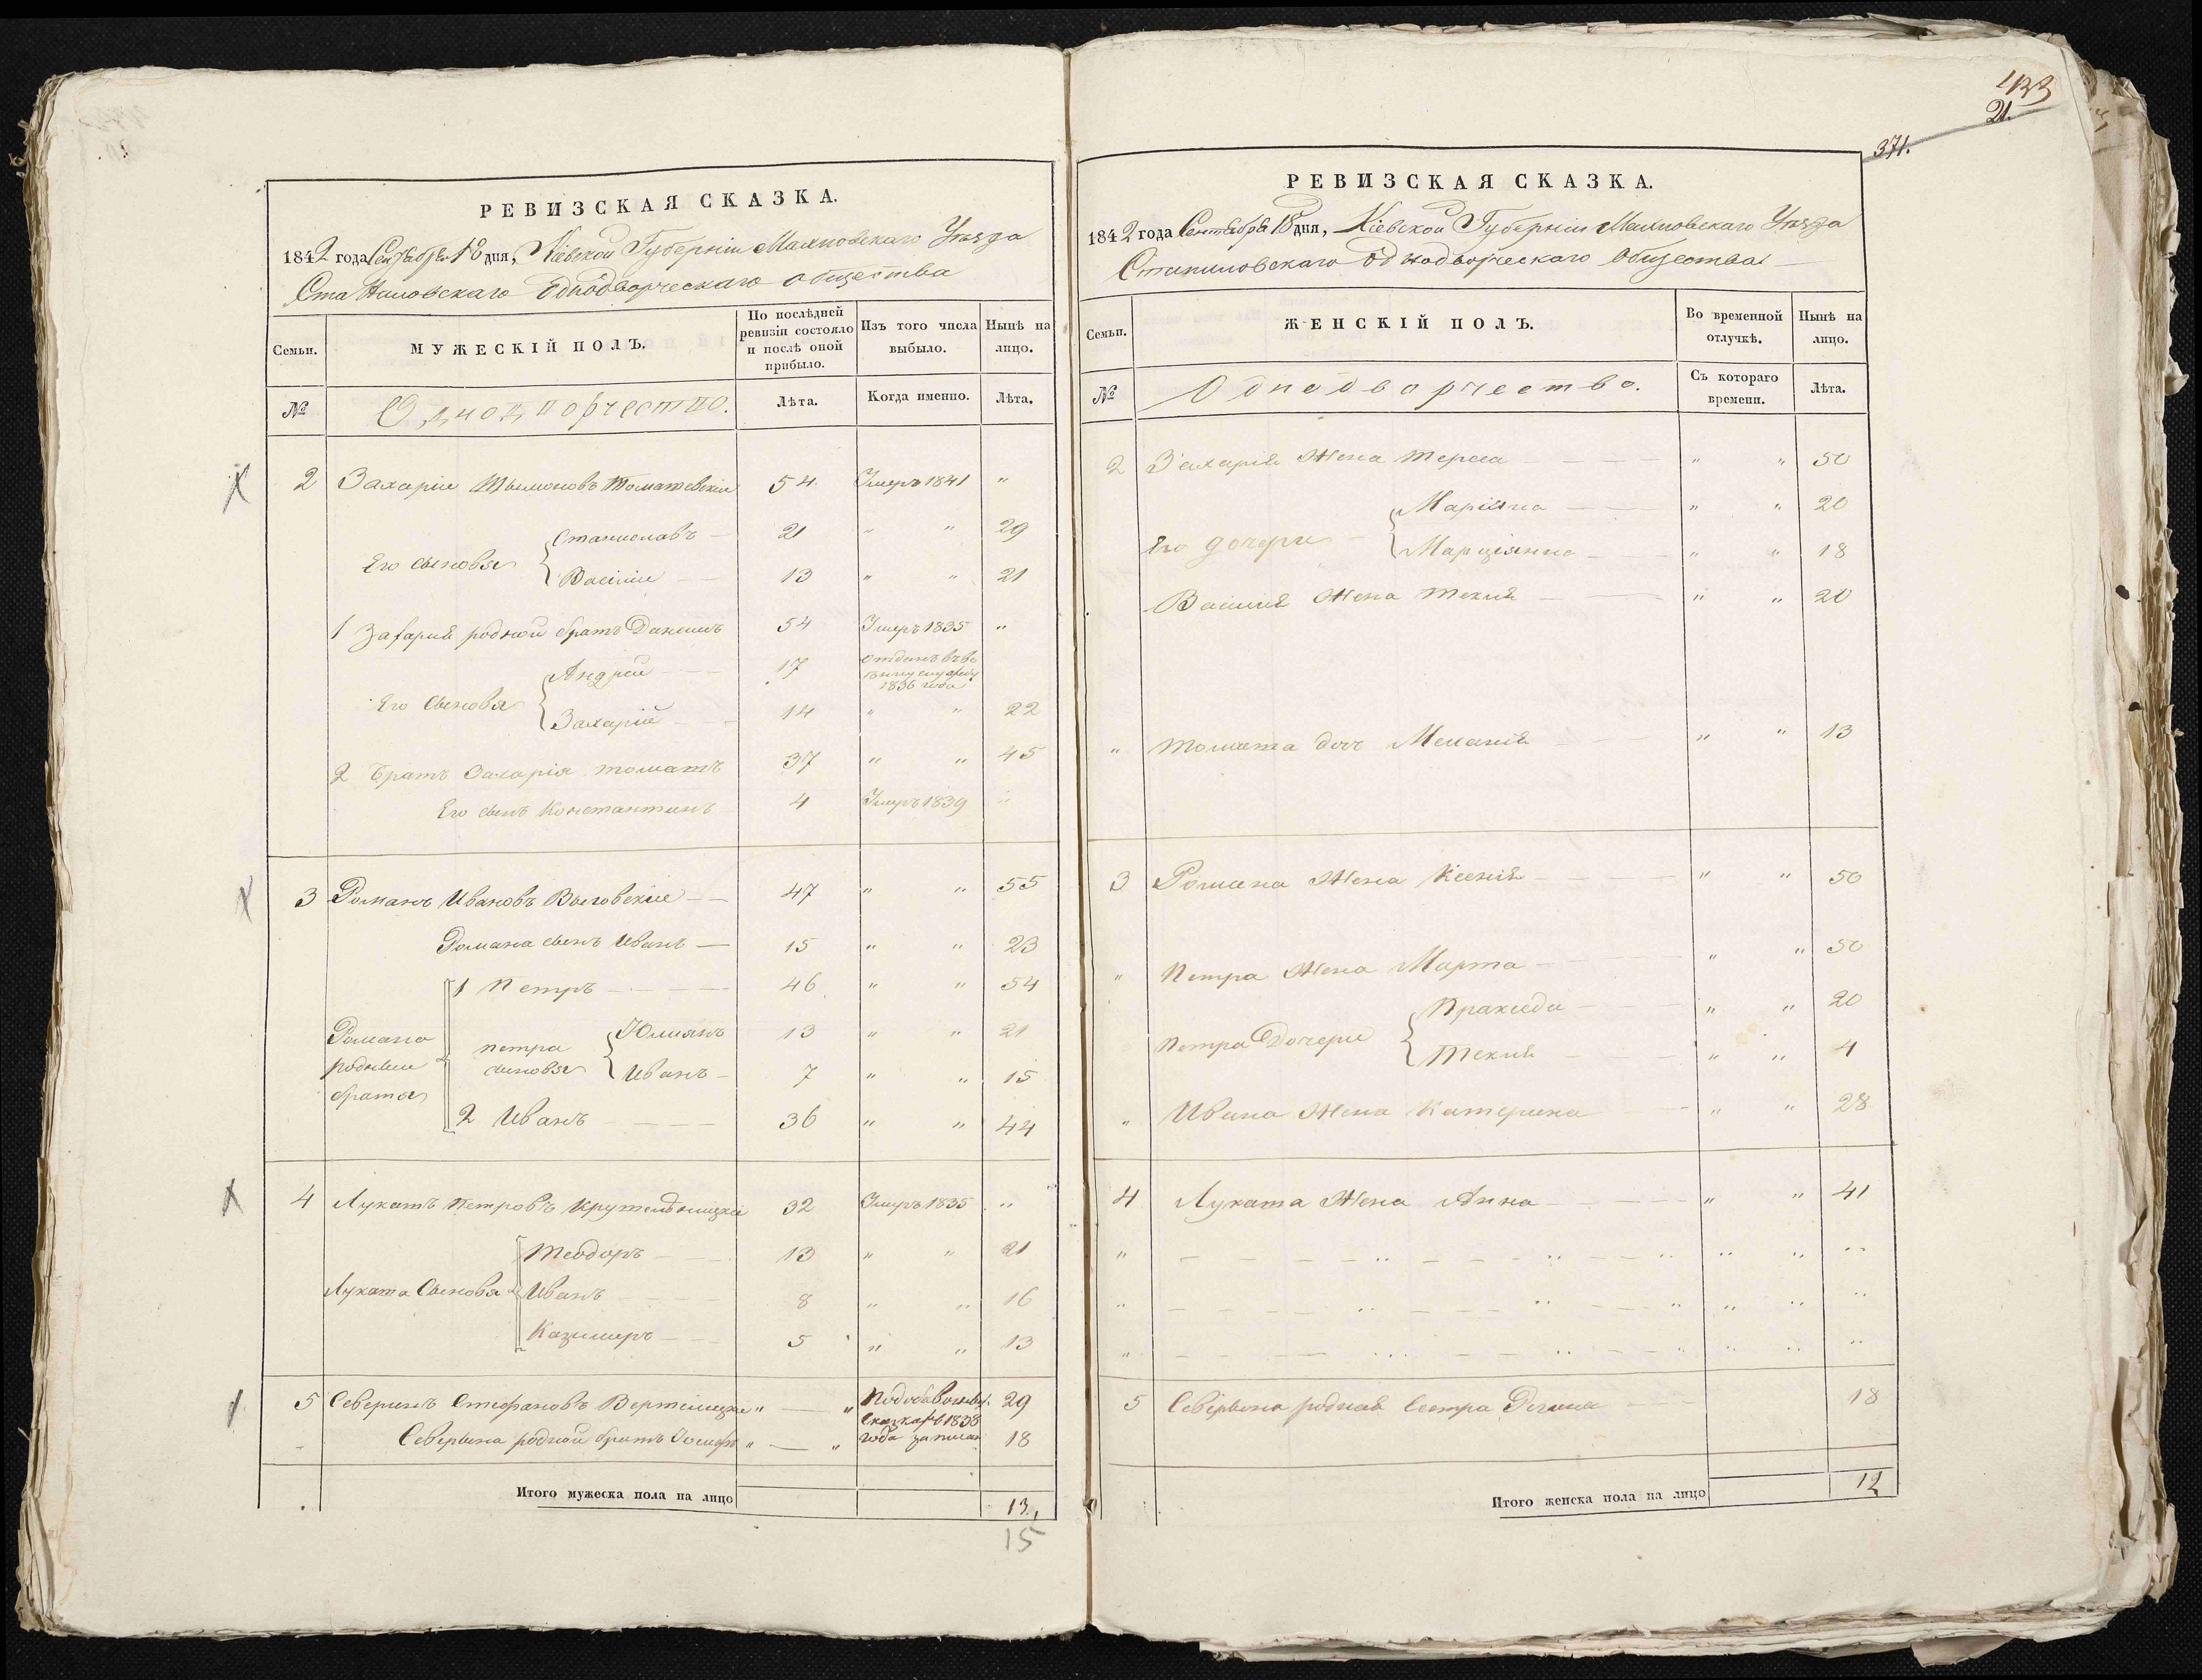 433
21.
371.
РЕВИЗСКАЯ СКАЗКА.
1842 года Сентября 18 дня, Кіевской Губерніи Махновскаго Уѣзда
Станиловскаго Однодворческаго Общества
Семьи.
МУЖЕСКІЙ ПОЛЪ.
По послѣдней ревизіи состояло и послѣ оной прибыло.
Изъ того числа выбыло.
Нынѣ на лицо.
№
Однодворчество.
Лѣта.
Когда именно.
Лѣта.
2 Захарій Шымоновъ Томашевскій 54 Умеръ 1841 "
Его сыновья { Станиславъ 21 " " 29
Василій 13 " " 21
1 Захарія родной братъ Данилъ 54 Умеръ 1835 "
Его сыновья { Андрей 17 отданъ въ во
енну службу
1836 года
Захарій 14 " " 22
2 Братъ Захарія Томашъ 37 " " 45
Его сынъ Константинъ 4 Умеръ 1839 "
3 Романъ Ивановъ Выговскій 47 " " 55
Романа сынъ Иванъ 15 " " 23
1 Петръ 46 " " 54
Романа родные братья
Петра сыновья { Юлианъ 13 " " 21
Иванъ 7 " " 15
2 Иванъ 36 " " 44
4 Лукашъ Петровъ 32 Умеръ 1835 "
Лукаша Сыновья { Теодоръ 13 " " 21
Иванъ 8 " " 16
Казимеръ 5 " " 13
5 Северинъ Стефановъ " — " 29
сказкѣ 1838
Северина родной братъ Іосифъ " — " года записан 18
Итого мужеска пола на лицо 13.
15
РЕВИЗСКАЯ СКАЗКА.
1842 года Сентября 18 дня, Кіевской Губерніи Махновскаго Уѣзда
Станиловскаго Однодворческаго Общества
Семьи.
ЖЕНСКІЙ ПОЛЪ.
Во временной отлучкѣ.
Нынѣ на лицо.
№
Однодворчество.
Съ котораго времени.
Лѣта.
2 Захарія Жена Тереса " " 50
Его дочери { Маріяна " " 20
Марціянна " " 18
Василія Жена Текля " " 20
" Томаша дочь Меланія " " 13
3 Романа Жена Ксенія " " 50
" Петра Жена Марта " " 50
Петра Дочери { Пракседа " " 20
Текля " " 4
" Ивана Жена Катерина " " 28
4 Лукаша Жена Анна " " 41
5 Северина родная Сестра 18
Итого женска пола на лицо 12